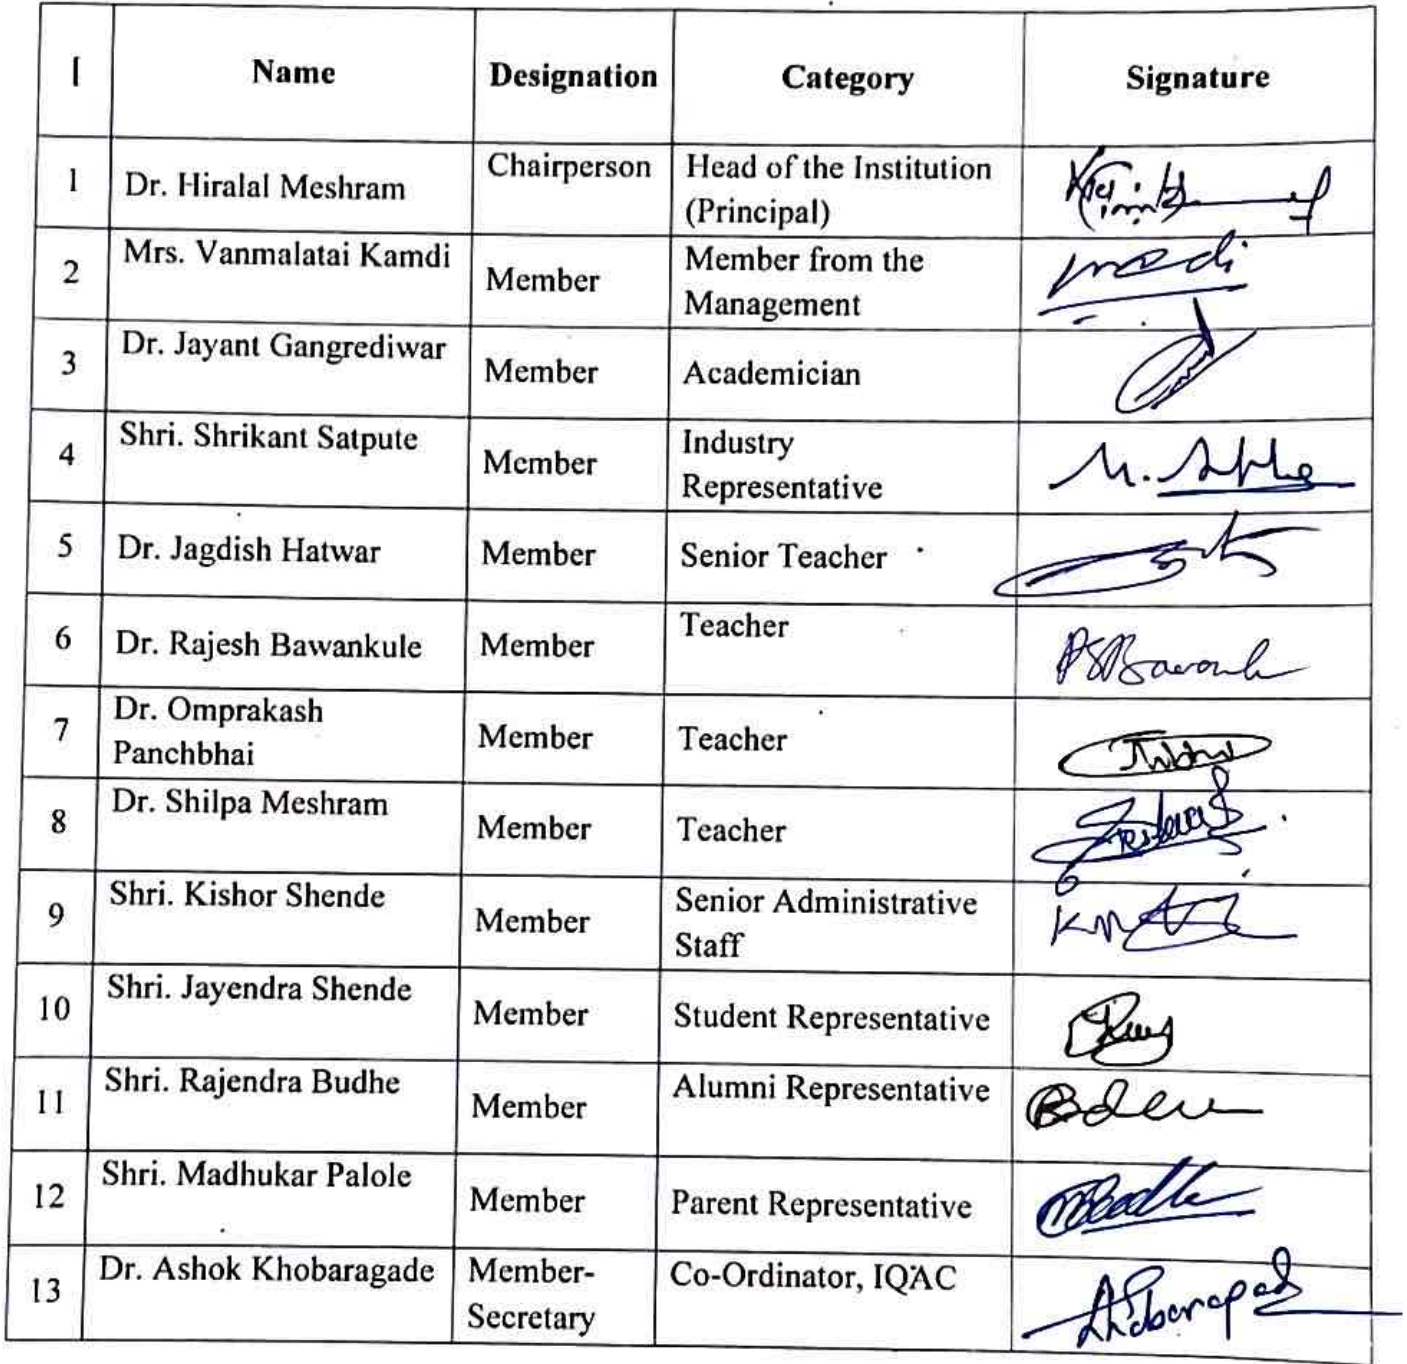 Name Designation Category Signature
1 Dr. Hiralal Meshram Chairperson Head of the Institution
(Principal)
2 Mrs. Vanmalatai Kamdi Member Member from the
Management
3 Dr. Jayant Gangrediwar Member Academician
4 Shri. Shrikant Satpute Member Industry
Representative
5 Dr. Jagdish Hatwar Member Senior Teacher
6 Dr. Rajesh Bawankule Member Teacher
7 Dr. Omprakash
Panchbhai Member Teacher
8 Dr. Shilpa Meshram Member Teacher
9 Shri. Kishor Shende Member Senior Administrative
Staff
10 Shri. Jayendra Shende Member Student Representative
11 Shri. Rajendra Budhe Member Alumni Representative
12 Shri. Madhukar Palole Member Parent Representative
13 Dr. Ashok Khobaragade Member-
Secretary Co-Ordinator, IQAC